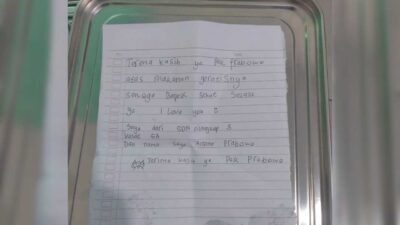 Terima kasih ya Pak Prabowo
atas makanan gratisnya
semoga Bapak sehat selalu
ya I love you
Saya dari SDN
kelas 6A
Dan nama saya Prabowo
Terima kasih ya Pak Prabowo